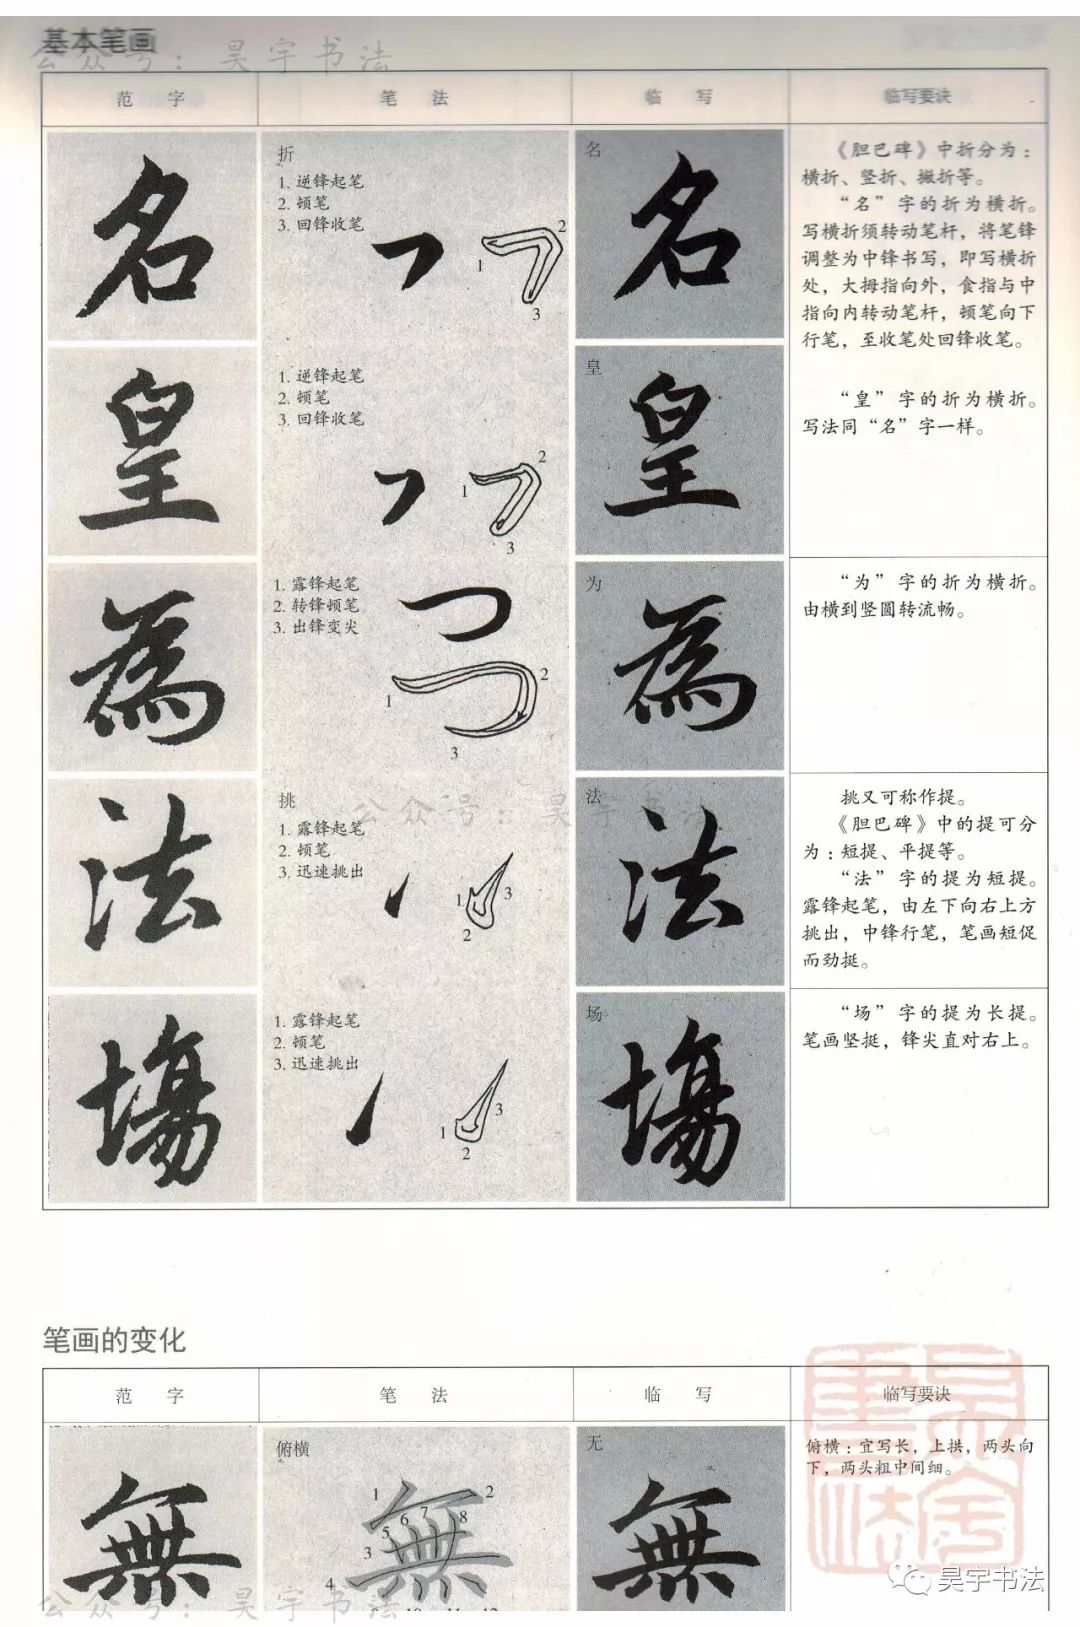 基本笔画
公众号：昊宇书法
范 字 笔 法 临 写 临写要诀
名
折
1. 逆锋起笔
2. 顿笔
3. 回锋收笔
1
2
3
名
名
《胆巴碑》中折分为：
横折、竖折、撇折等。
“名”字的折为横折。
写横折须转动笔杆，将笔锋
调整为中锋书写，即写横折
处，大拇指向外，食指与中
指向内转动笔杆，顿笔向下
行笔，至收笔处回锋收笔。
皇
1. 逆锋起笔
2. 顿笔
3. 回锋收笔
1
2
3
皇
皇
“皇”字的折为横折。
写法同“名”字一样。
為
1. 露锋起笔
2. 转锋顿笔
3. 出锋变尖
1
2
3
为
為
“为”字的折为横折。
由横到竖圆转流畅。
法
挑
1. 露锋起笔
2. 顿笔
3. 迅速挑出
1
2
3
公众号：昊宇书法
法
法
挑又可称作提。
《胆巴碑》中的提可分
为：短提、平提等。
“法”字的提为短提。
露锋起笔，由左下向右上方
挑出，中锋行笔，笔画短促
而劲挺。
場
1. 露锋起笔
2. 顿笔
3. 迅速挑出
1
2
3
场
場
“场”字的提为长提。
笔画坚挺，锋尖直对右上。
笔画的变化
范 字 笔 法 临 写 临写要诀
無
俯横
1 2
5 6 7 8
3
4
無
无
無
俯横：宜写长，上拱，两头向
下，两头粗中间细。
昊宇书法
昊宇书法
公众号：昊宇书法